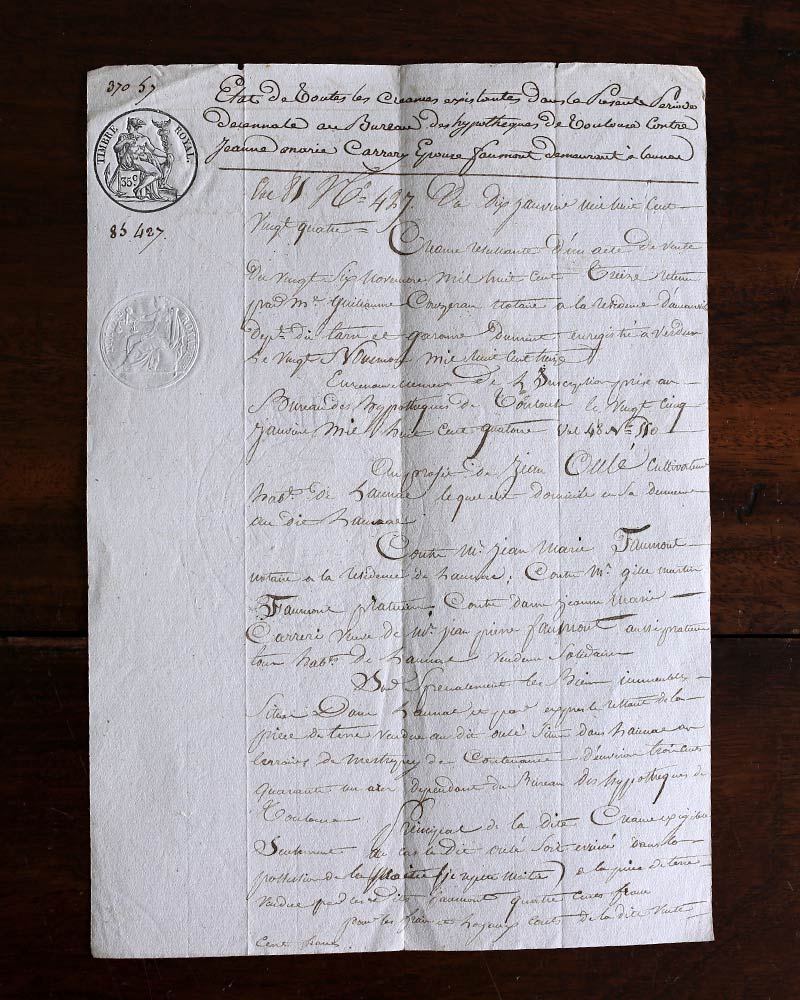 370 57
Etat de toutes les creances existantes dans la Presente Periode
decennale au Bureau des hypotheques de Toulouse Contre
Jeanne marie Carrery Epouse faumont demeurant à launac
TIMBRE ROYAL.
35c
85 427.
Vol 85 No. 427. Du dix janvier mil huit Cent
Vingt quatre =
Creance resultante d'un acte de vente
Du Vingt Six novembre mil huit Cent treize retenu
par Me. Guillaume Couzeran notaire a la residence
dept. du tarn et garonne Dument enregistré a Verdun
Le Vingt Novembre mil huit Cent treize
En renouvellement De L'Inscription prise au
Bureau des hypotheques De Toulouse le Vingt Cinq
janvier mil huit Cent quatorze Vol 48 No. 550
Au profit de jean Oulé Cultivateur
habt. De Launac lequel elit domicile en sa demeure
au dit Launac
Contre Mr. jean Marie Faumont
notaire a la residence de Launac; Contre Mr. gilles martin
Faumont praticien Contre dame jeanne Marie
Carrere Veuve de Mr. jean pierre Faumont aussi praticien
tous habts. de Launac vendeurs Solidaires
Specialement les Biens immeubles
Situés Dans Launac et par exprès le restant de la
pièce de terre vendue au dit oulé Situé dans Launac au
terroirs de De Contenance d'environ trois Cents
quarante un ares dependant du Bureau Des hypotheques de
Toulouse
Principal de la dite Creance exigible
Seulement au cas le dit oulé soit evincé dans la
possession de la a la pièce de terre
vendue par les dits faumont quatre Cents francs
pour les frais et loyaux couts de la dite Vente
Cent francs